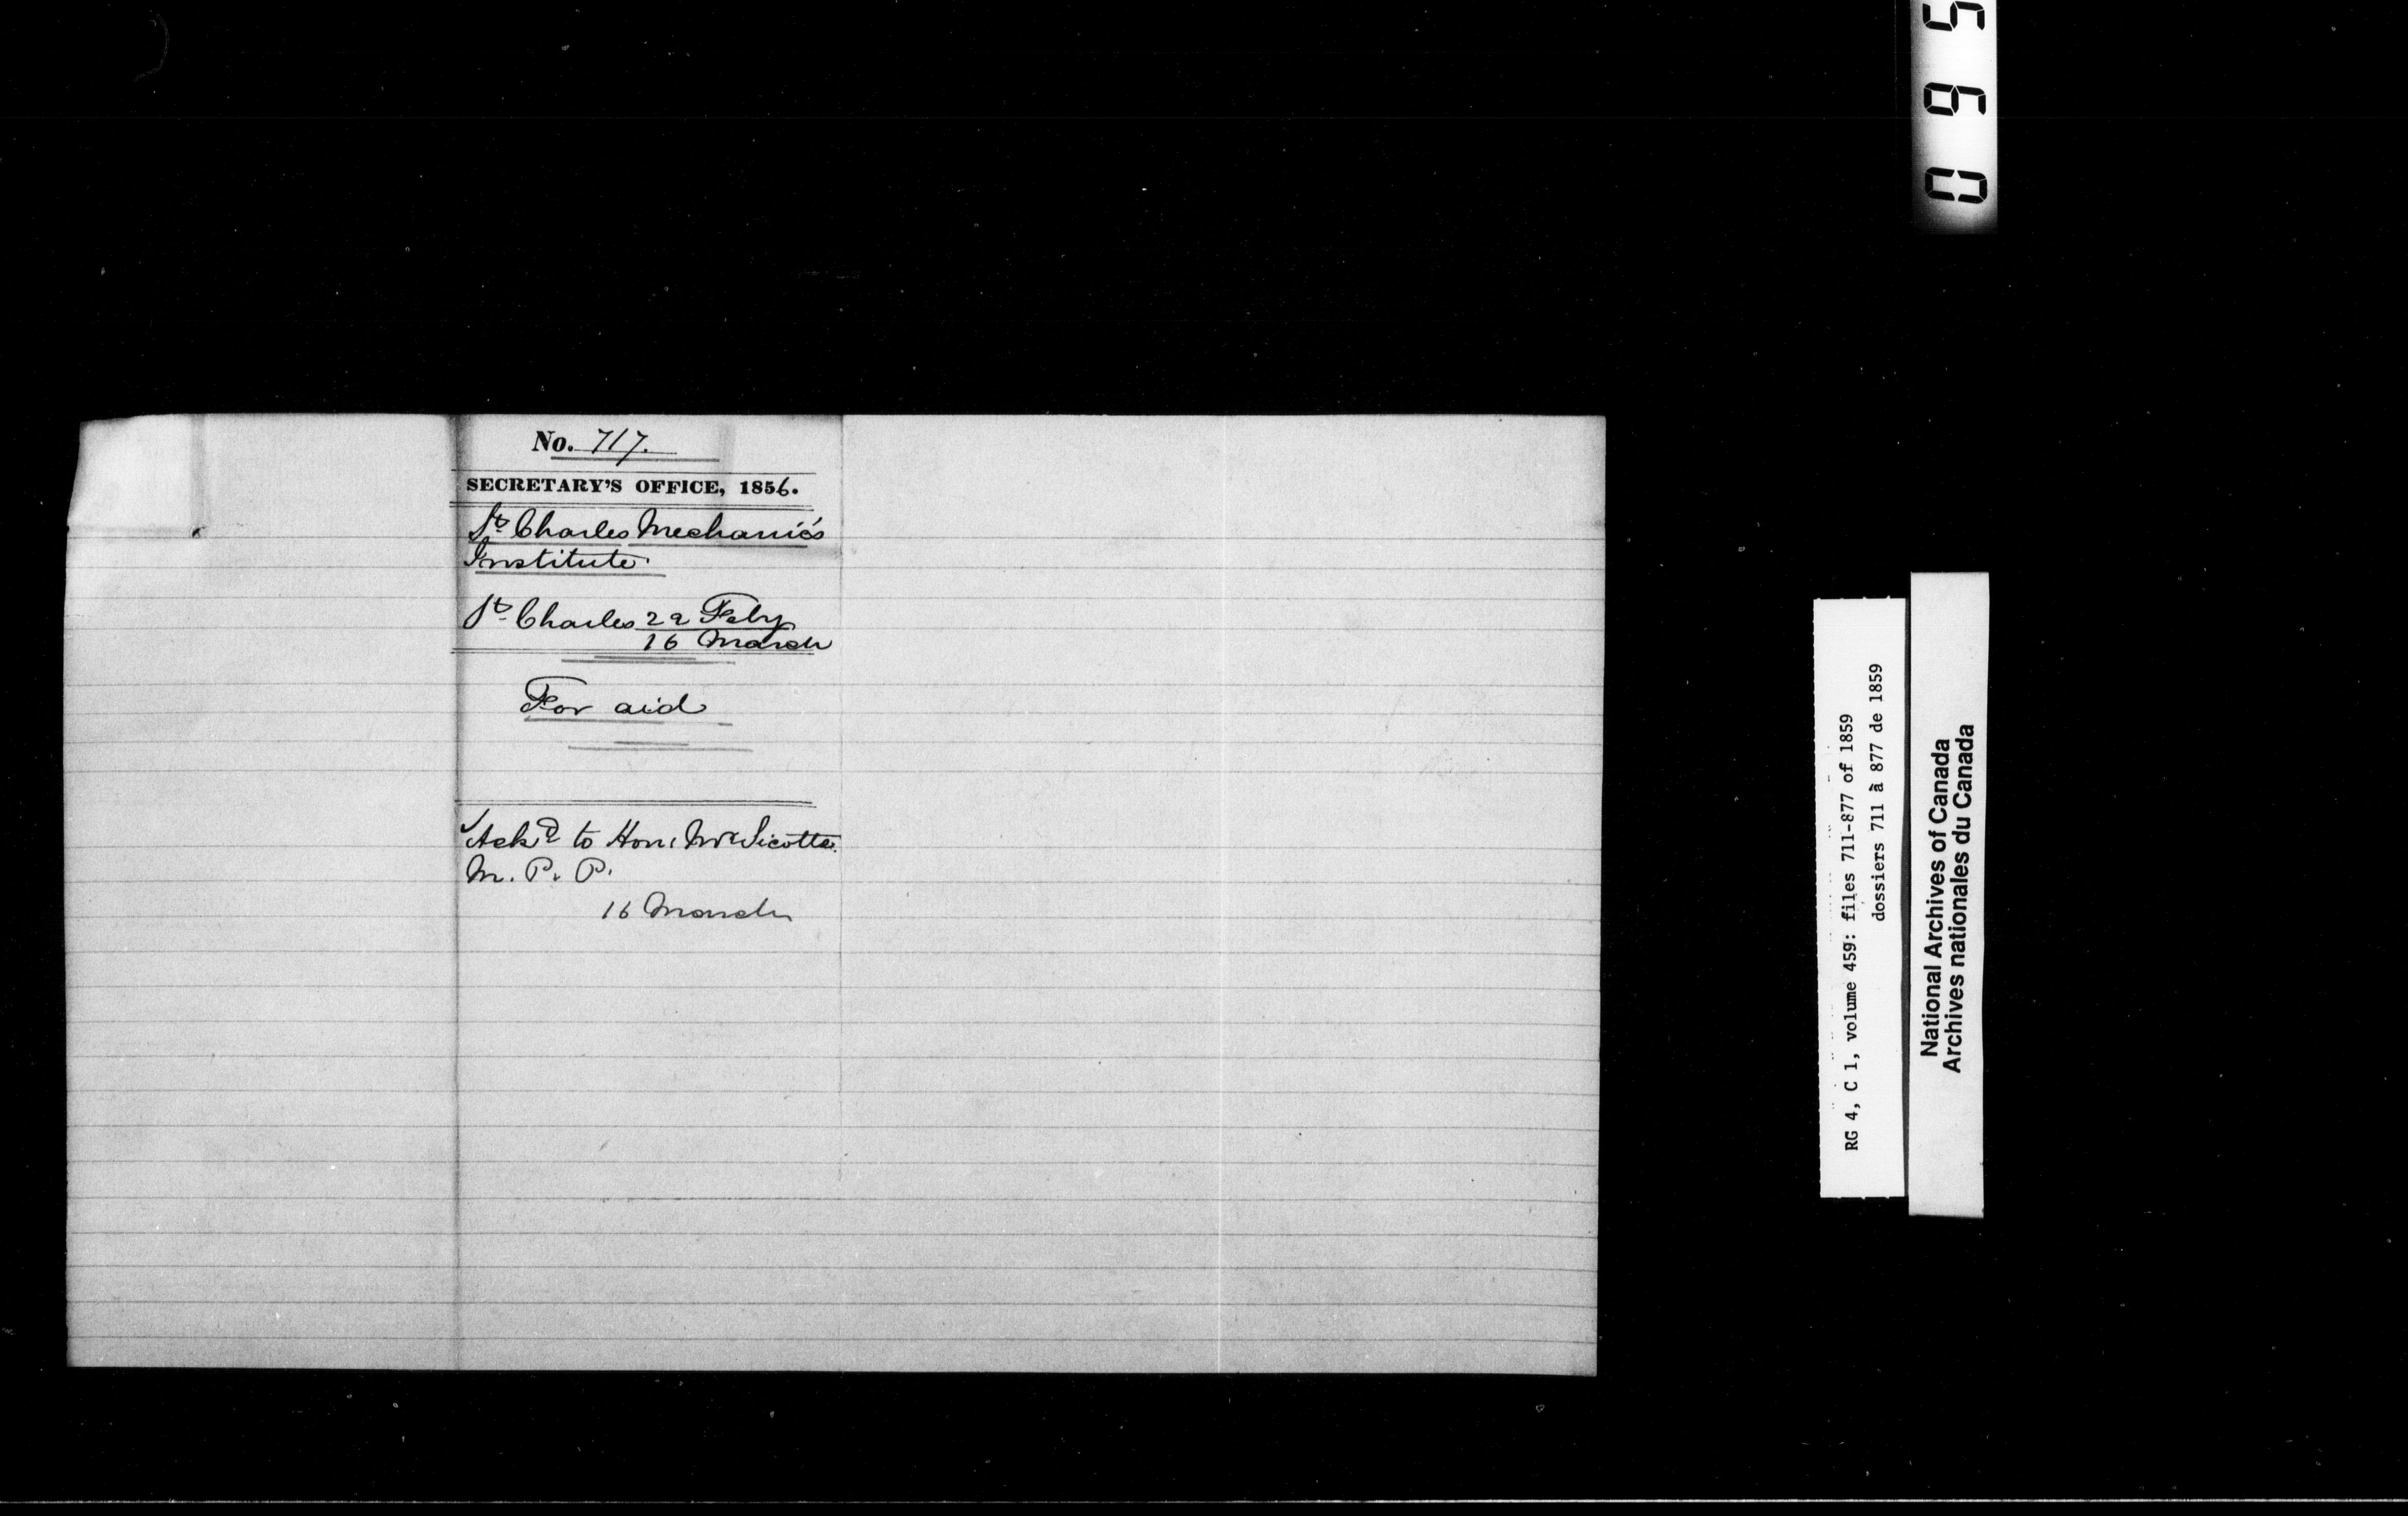 No. 717.
SECRETARY'S OFFICE, 1856.
St Charles Mechanic's
Institute
St Charles 22 Feby
16 March
For aid
Ackd to Hon. Mr Sicotte
M. P. P.
16 March
RG 4, C 1, volume 459: files 711-877 of 1859
dossiers 711 à 877 de 1859
National Archives of Canada
Archives nationales du Canada
0 6 5